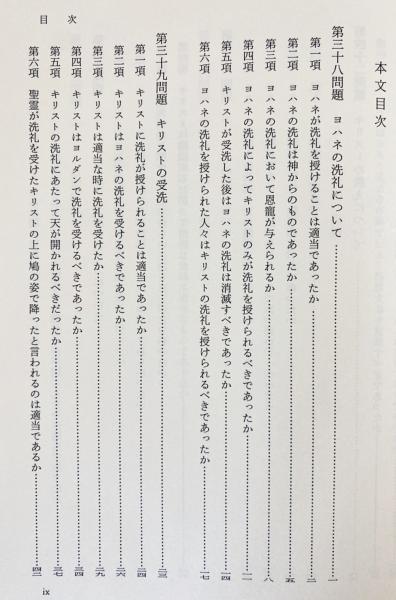 目　次
本文目次
第三十八問題　ヨハネの洗礼について……一
第一項　ヨハネが洗礼を授けることは適当であったか……二
第二項　ヨハネの洗礼は神からのものであったか……五
第三項　ヨハネの洗礼において恩寵が与えられるか……八
第四項　ヨハネの洗礼によってキリストのみが洗礼を授けられるべきであったか……一一
第五項　キリストが受洗した後はヨハネの洗礼は消滅すべきであったか……一四
第六項　ヨハネの洗礼を授けられた人々はキリストの洗礼を授けられるべきであったか……一七
第三十九問題　キリストの受洗……二三
第一項　キリストに洗礼が授けられることは適当であったか……二四
第二項　キリストはヨハネの洗礼を受けるべきであったか……二六
第三項　キリストは適当な時に洗礼を受けたか……二九
第四項　キリストはヨルダンで洗礼を受けるべきであったか……三四
第五項　キリストの洗礼にあたって天が開かれるべきだったか……三七
第六項　聖霊が洗礼を受けたキリストの上に鳩の姿で降ったと言われるのは適当であるか……四二
ix